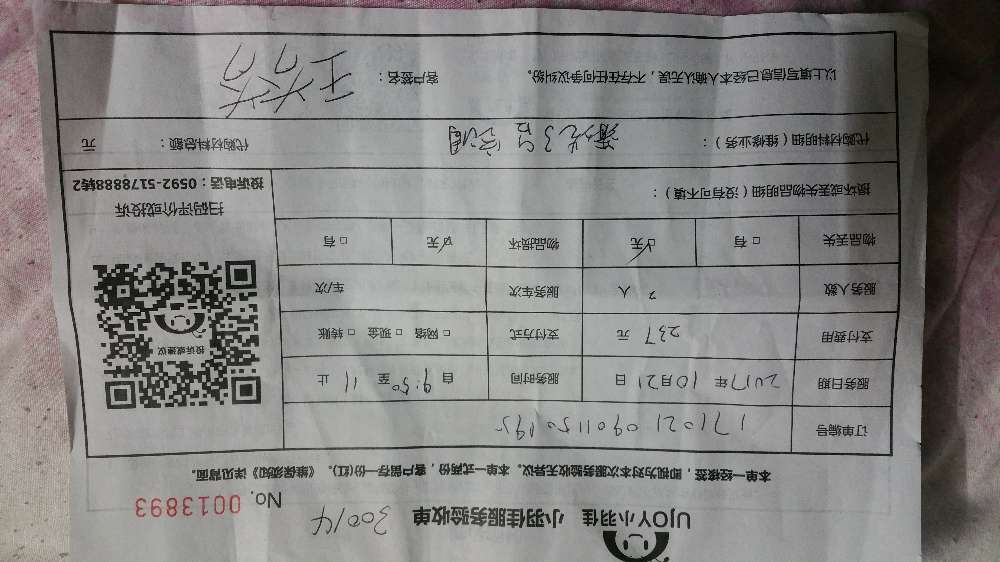 UJOY小羽佳 小羽佳服务验收单 30014
No. 0013893
本单一经接签，即视为对本次服务验收无异议。本单一式两份，客户留存一份(红)。《维保须知》详见背面。
订单编号 1710210901150195
服务日期 2017年10月21日 服务时间 自9:50至11止
支付费用 237元 支付方式 □网络 □现金 □转账
服务人数 2人 服务车次 车/次
物品丢失 □有 ☑无 物品损坏 ☑无 □有
损坏或丢失物品明细（没有可不填）：
投诉或建议
扫码评价或投诉
投诉电话：0592-5178888转2
代购材料明细（维修业务）： 清洗3台空调 代购材料总额： 元
以上填写信息已经本人确认无误，不存在任何争议纠纷。 客户签名：